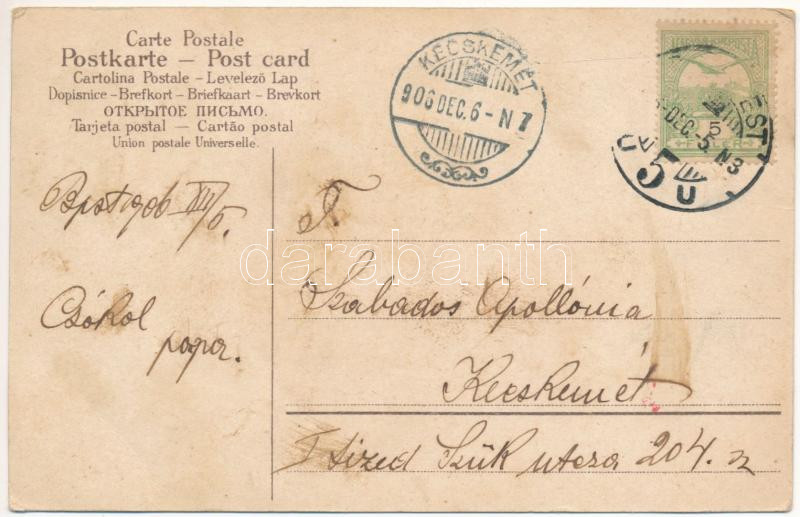 Carte Postale
Postkarte – Post card
Cartolina Postale – Levelező Lap
Dopisnice – Brefkort – Briefkaart – Brevkort
ОТКРЫТОЕ ПИСЬМО.
Tarjeta postal – Cartão postal
Union postale Universelle.
KECSKEMÉT
906 DEC. 6 - N 7
DEC. - 5. N3
5
FILLÉR
Bpest 906 XII/5.
Csókol
papa.
T.
Szabados Apollónia
Kecskemét
I tized Szűk utcza 204. sz
darabanth